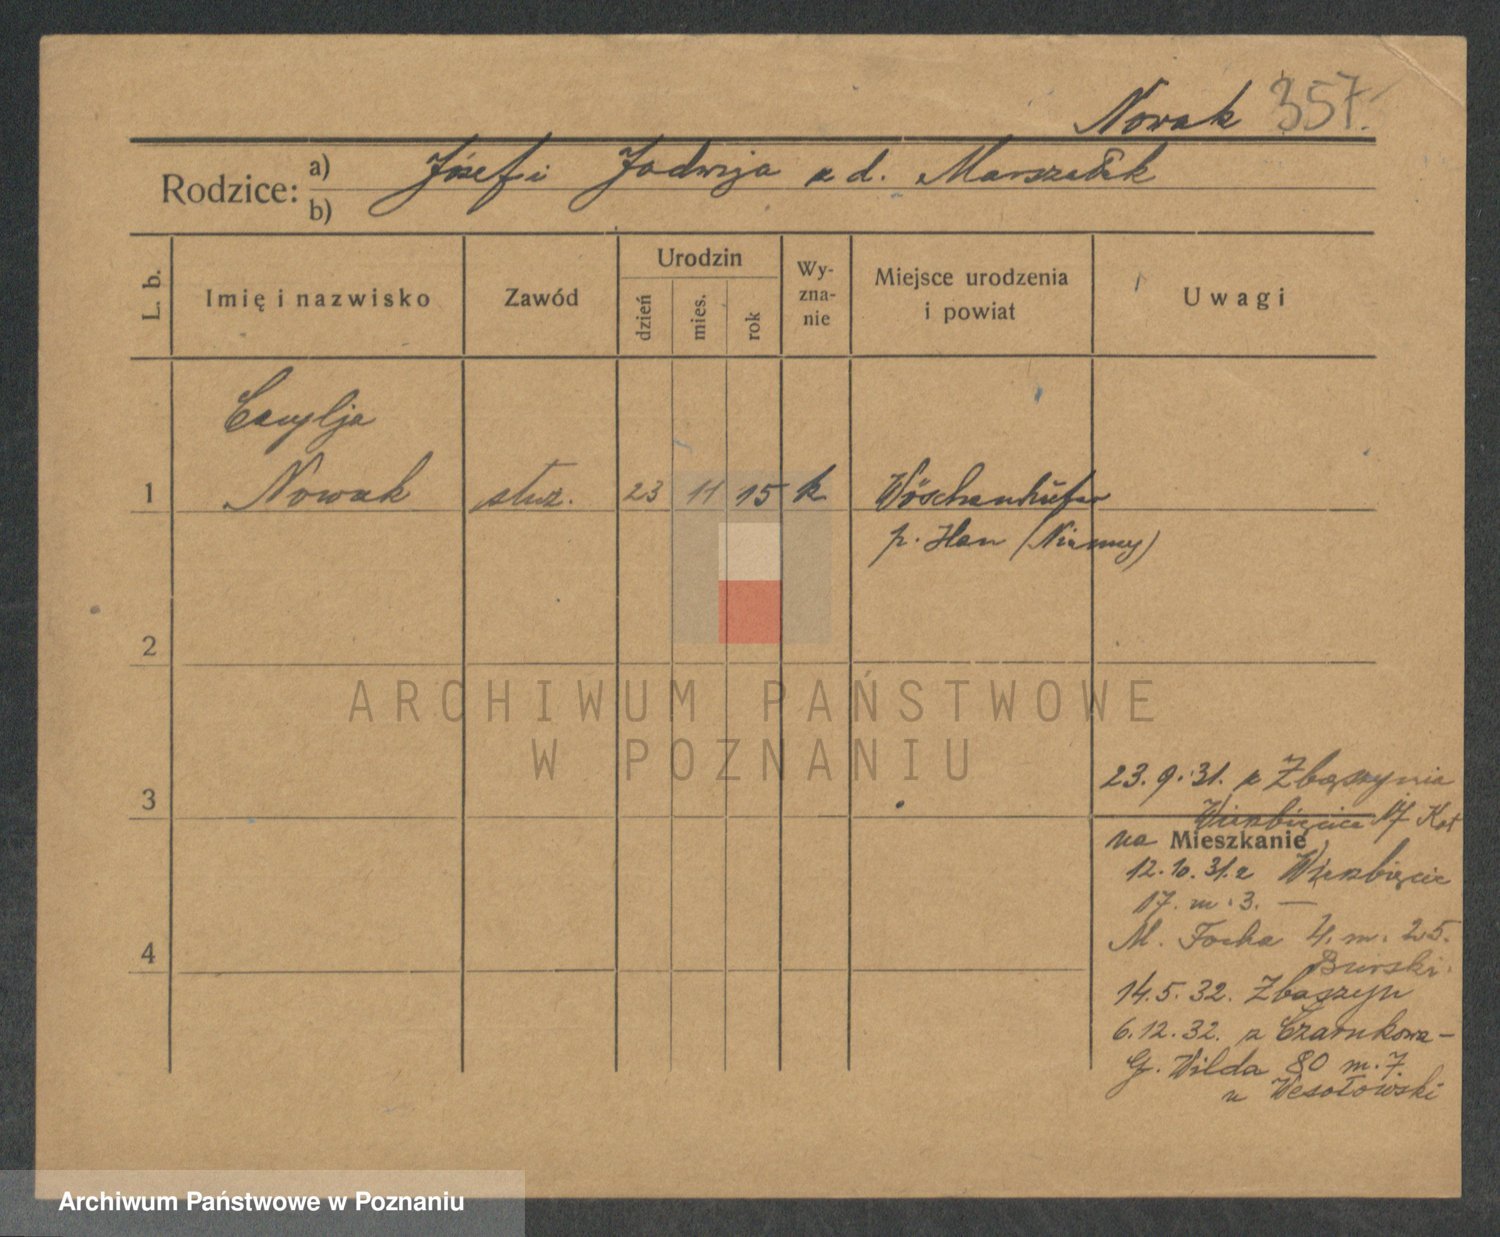 Nowak 357.
Rodzice:
a) Józef i Jadwiga z d. Marszałek
b)
L. b.
Imię i nazwisko
Zawód
Urodzin
dzień
mies.
rok
Wy-
zna-
nie
Miejsce urodzenia
i powiat
Uwagi
Cecylja
1 Nowak służ. 23 11 15 k
p. (Niemcy)
2
3
4
23.9.31. z Zbąszynia
Wierzbięcice 17
na Mieszkanie
12.10.31. Wierzbięcie
17. m. 3. —
M. Focha 4. m. 25.
Burski.
14.5.32. Zbąszyń
6.12.32. z Czarnkowa –
G. Wilda 80 m. 7.
u Wesołowski
ARCHIWUM PAŃSTWOWE
W POZNANIU
Archiwum Państwowe w Poznaniu